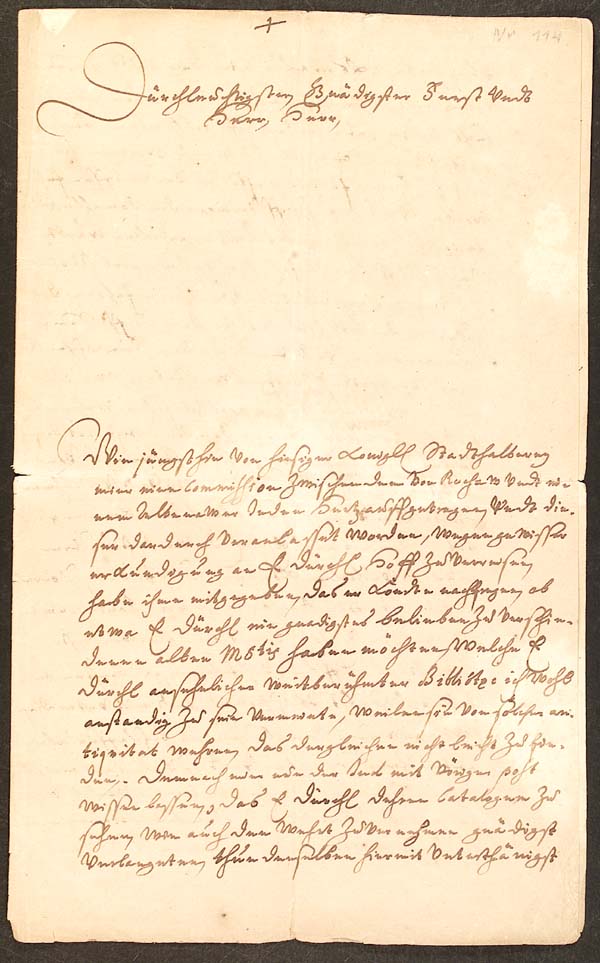 Nr 114
Dürchleuchtigster, Gnädigster Fürst Undt
Herr, Herr,
Wie jüngsthin Von hiesiger Königll Stadthalterey
mier eine Commission Zwischen dem Von Undt
einem Juden auffgetragen, Undt die-
ser dardurch Veranlasset worden, wegen gewisser
erkundigung an E Dürchl Hoff Zu Verreisen,
habe ihme mitgegeben, das er köndte nachfragen, ob
etwa E Dürchl ein gnädigstes belieben Zu Verschie-
denen alten Mstis haben möchten Welche E
Dürchl ansehelicher weitberühmter Bibliothec ich Wohl
anstandig Zu sein Vermeine, weilen sie Von solcher an-
tiquitat wehren, das dergleichen nicht leicht Zu fin-
den. Demnach mier nun der Jud mit Voriger post
wissen lassen, das E Dürchl dehren Catalogum Zu
sehen, wie auch den wehrt Zu Vernehmen gnädigst
Verlangeten, thue denselben hiermit Unterthänigst